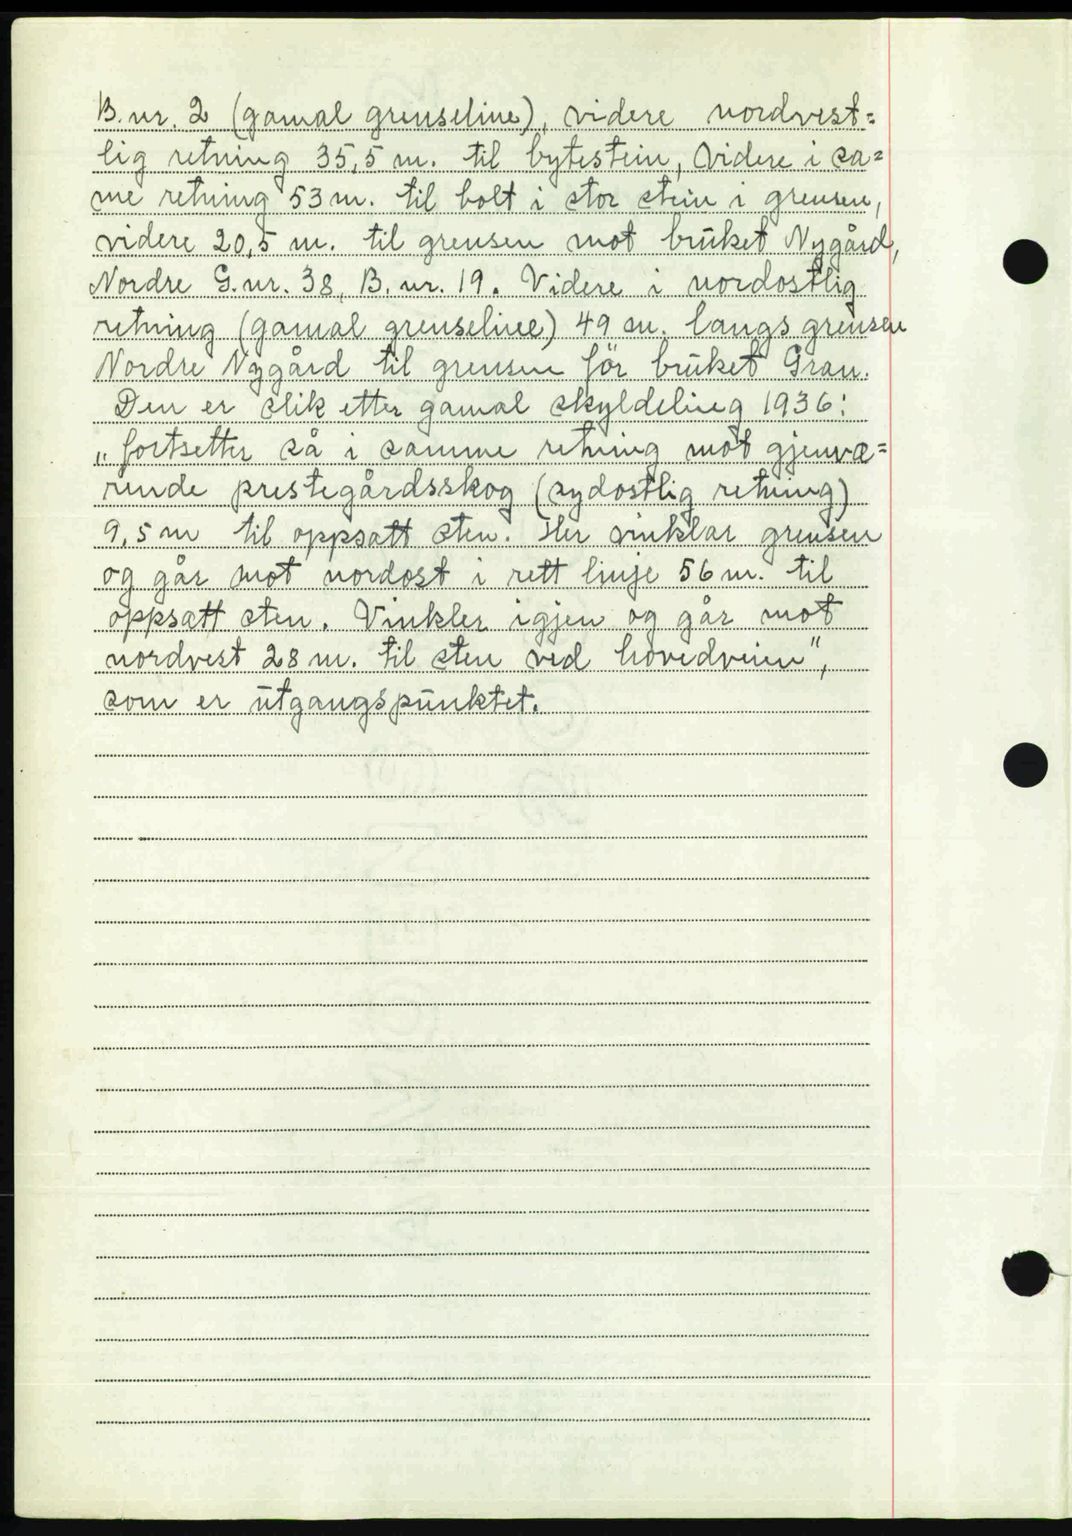 B.nr. 2 (gamal grenseline), videre nordvest=
lig retning 35,5 m. til bytestein, Videre i sa=
me retning 53 m. til bolt i stor stein i grensen,
videre 20,5 m. til grensen mot bruket Nygård,
Nordre G.nr. 38, B.nr. 19. Videre i nordostlig
retning (gamal grenseline) 49 m. langs grensen
Nordre Nygård til grensen för bruket Gran.
Den er slik etter gamal skyldeling 1936:
„fortsetter så i samme retning mot gjenvæ=
rende prestegårdsskog (sydostlig retning)
9,5 m til oppsatt sten. Her vinklar grensen
og går mot nordost i rett linje 56 m. til
oppsatt sten. Vinkler igjen og går mot
nordvest 28 m. til sten ved hovedveien",
som er utgangspunktet.